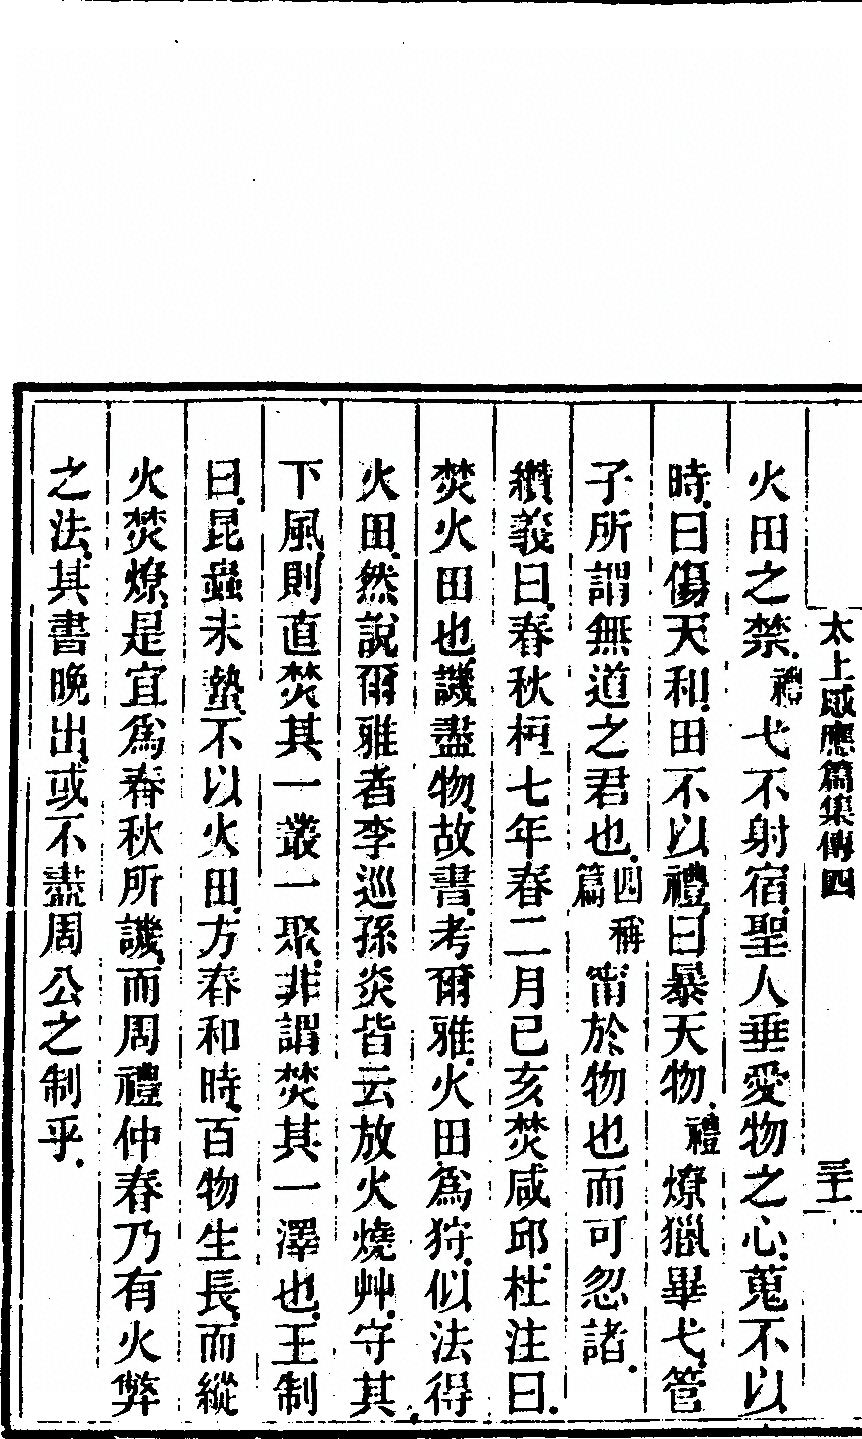 太上感應篇集傳四
三十
火田之禁禮弋不射宿聖人垂愛物之心蒐不以
時曰傷天和田不以禮曰暴天物禮燎獵畢弋管
子所謂無道之君也四稱篇甯於物也而可忽諸
纘義曰春秋桓七年春二月己亥焚咸邱杜注曰
焚火田也譏盡物故書考爾雅火田為狩似法得
火田然說爾雅者李巡孫炎皆云放火燒艸守其
下風則直焚其一叢一聚非謂焚其一澤也王制
曰昆蟲未蟄不以火田方春和時百物生長而縱
火焚燎是宜為春秋所譏而周禮仲春乃有火弊
之法其書晚出或不盡周公之制乎